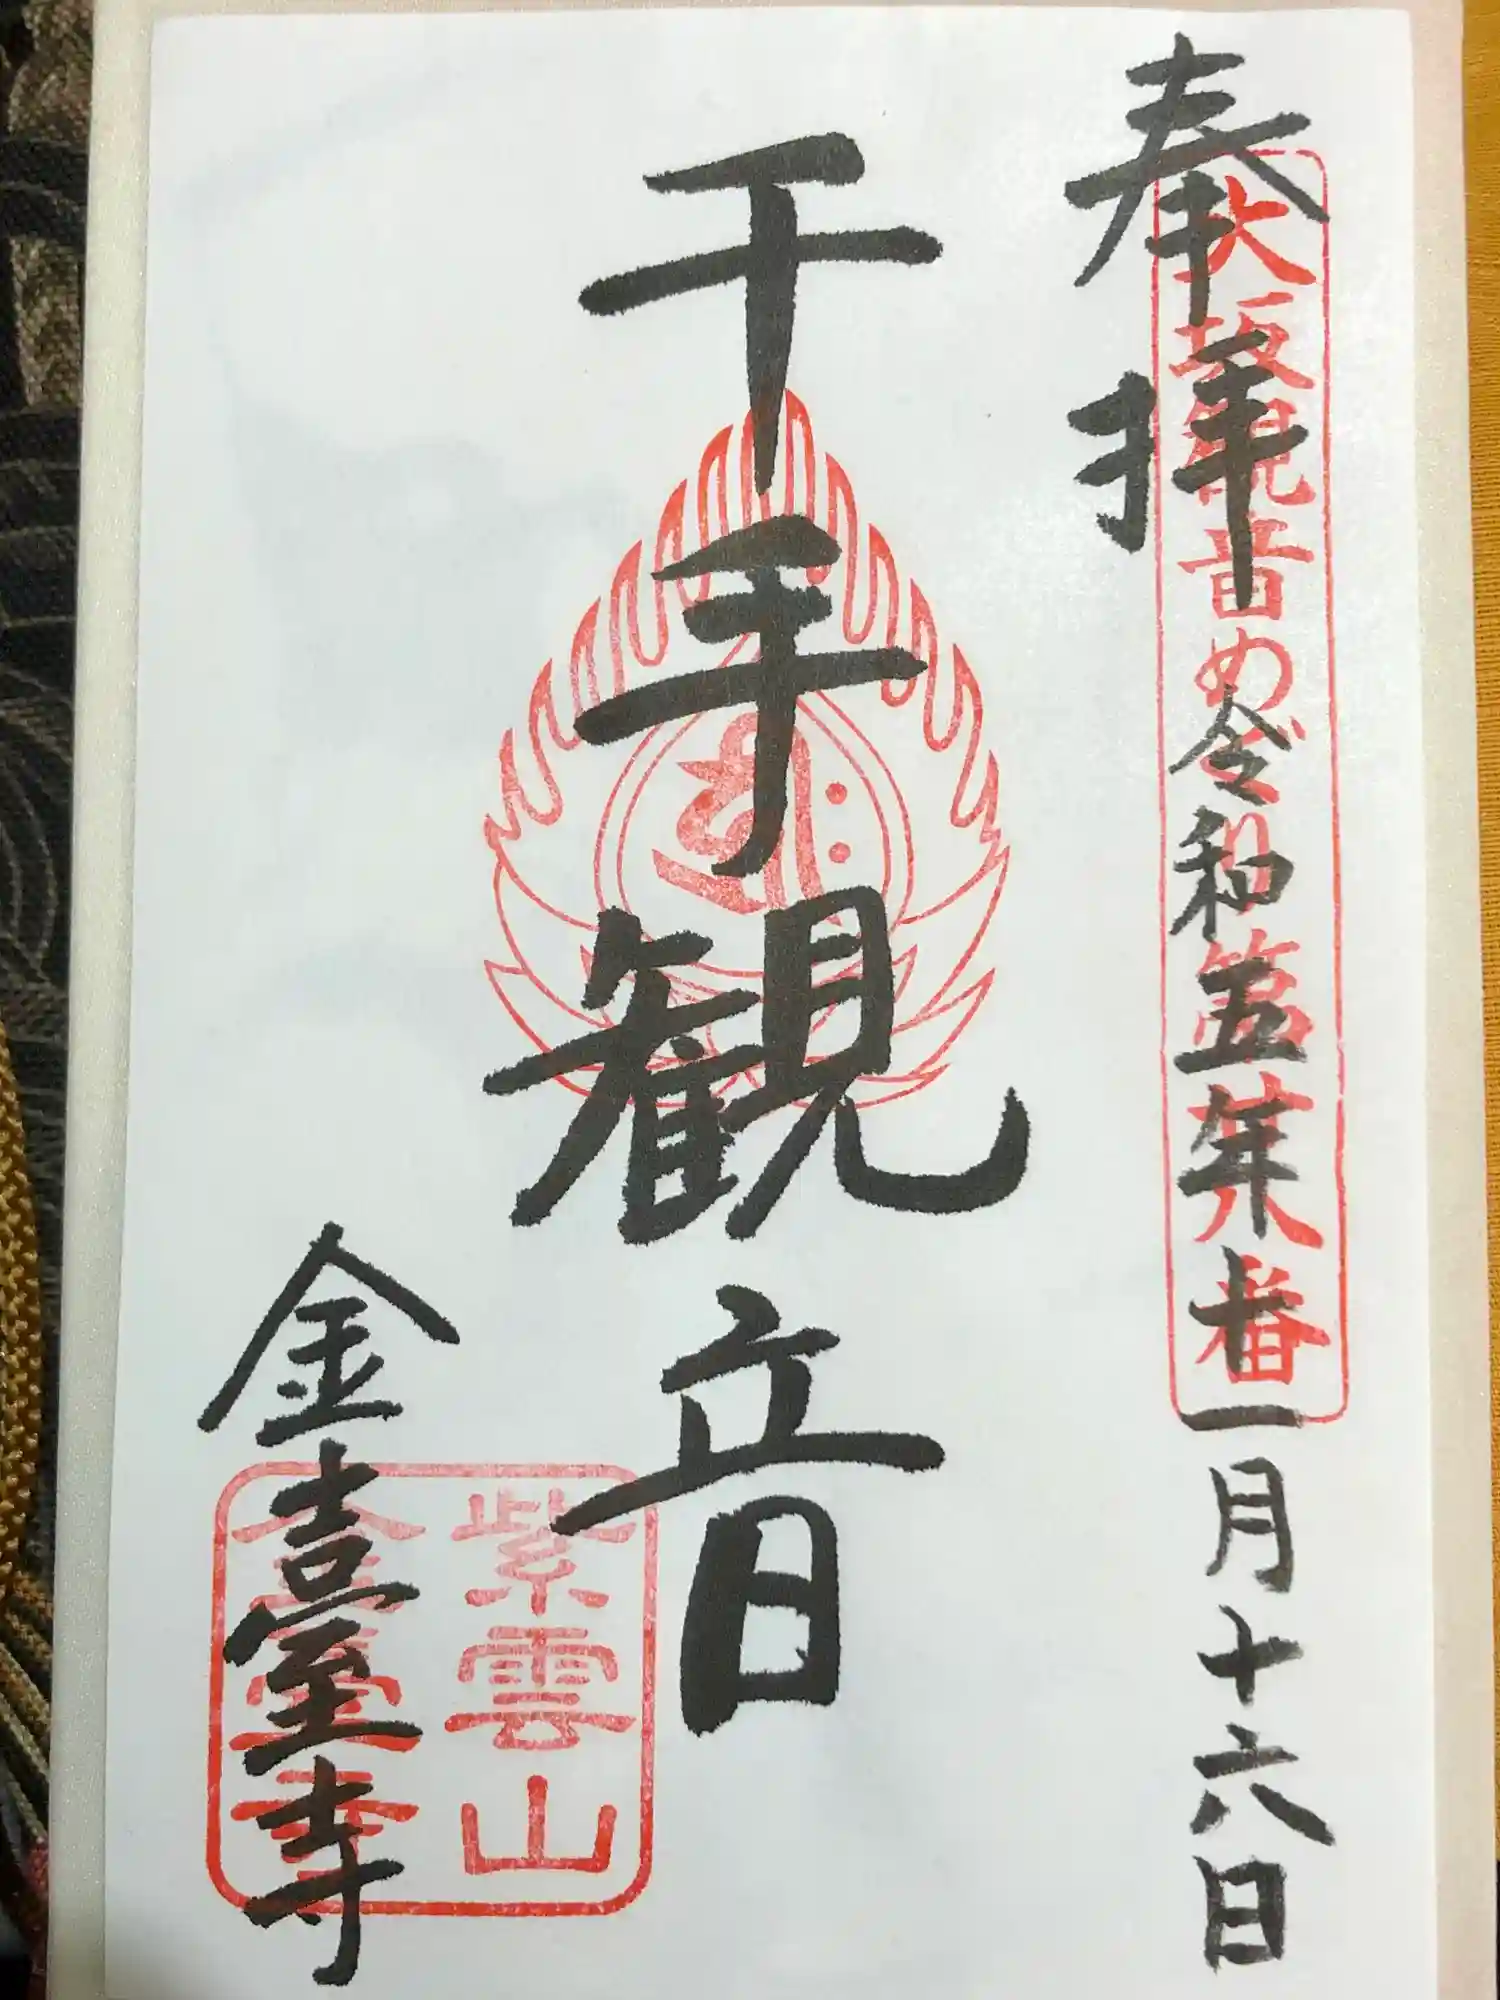 奉拝
大坂観音めぐり第廿八番
令和五年十一月十六日
千手観音
紫雲山
金臺寺
金臺寺